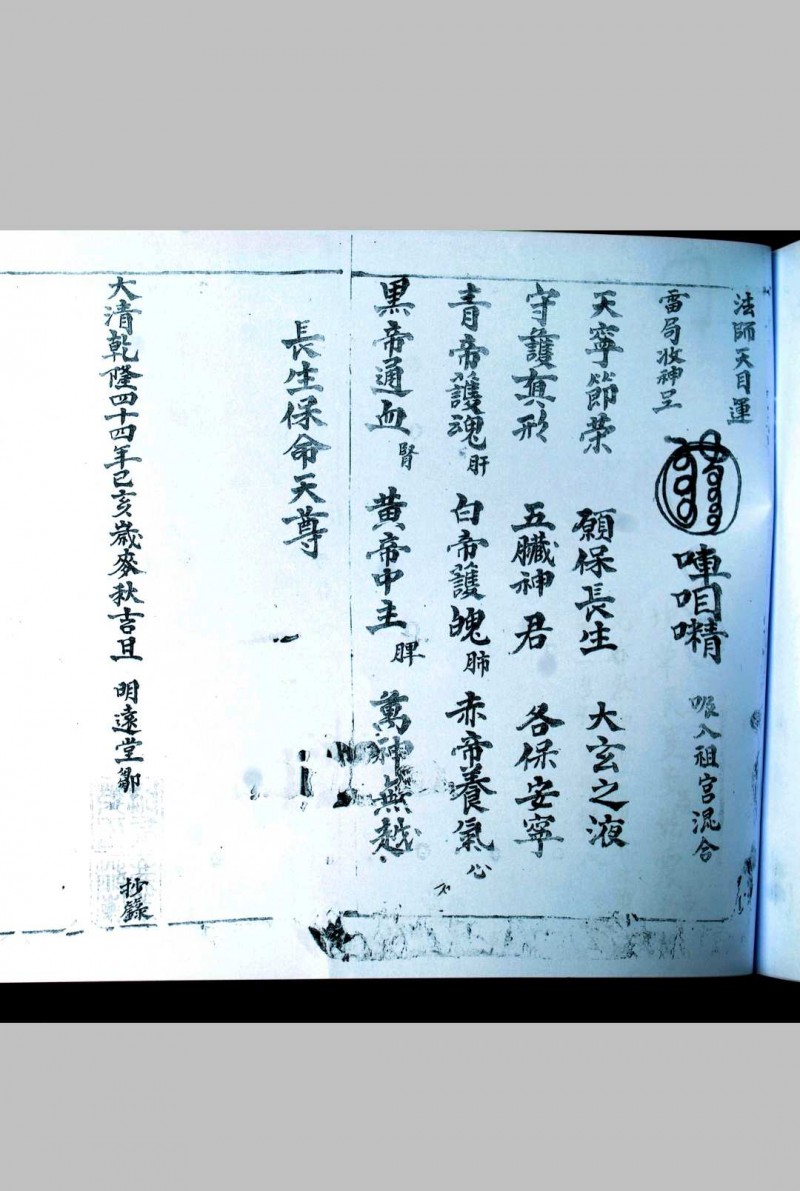 法師天目運
雷局收神呈
唓㖈㘋 吸入祖宮混合
天寧節荣 願保長生 大玄之液
守護真形 五臟神君 各保安寧
青帝護魂肝 白帝護魄肺 赤帝養氣心
黒帝通血腎 黄帝中主脾 萬神無越
長生保命天尊
大清乾隆四十四年己亥歲麥秋吉旦 明遠堂鄒 抄錄